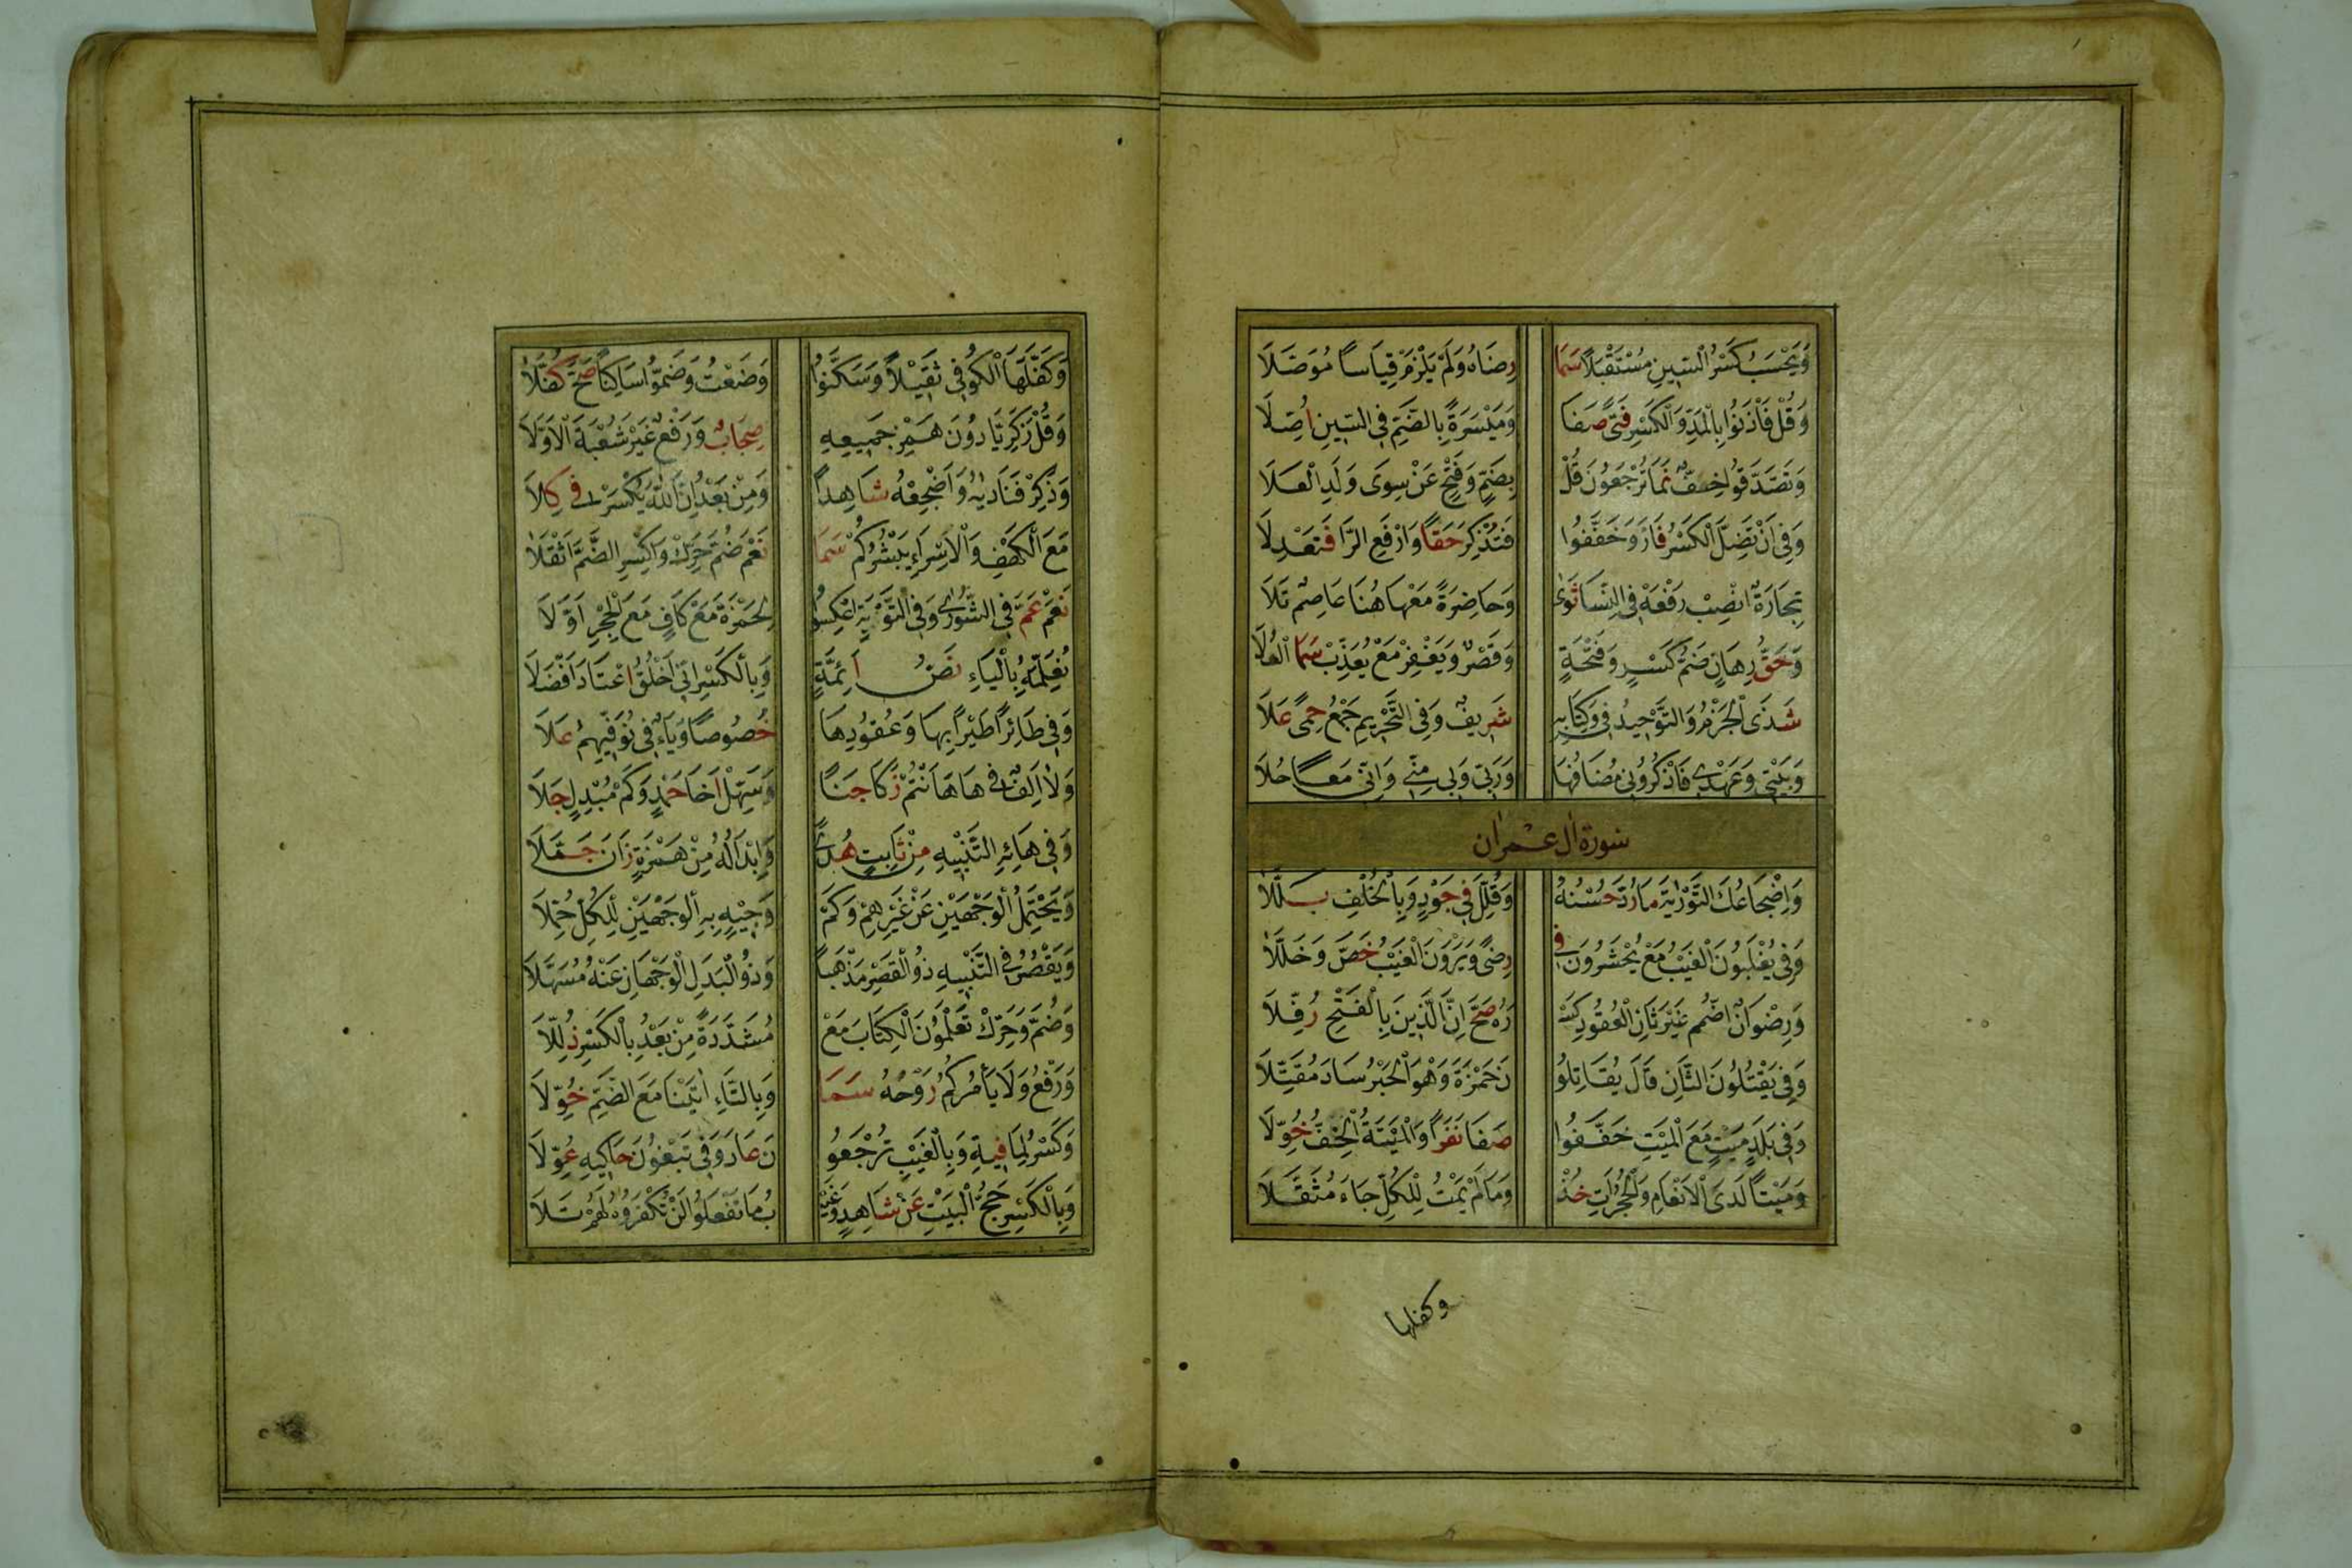 وَيَحْسَبُ كَسْرُ السِّينِ مُسْتَقْبَلاً سَمَا رِضَاهُ وَلَمْ يَلْزَمْ قِيَاسًا مُوَصَّلَا
وَقُلْ فَأْذَنُوا بِالْمَدِّ وَالْكَسْرِ فَتًى صَفَا وَمَيْسَرَةً بِالضَّمِّ فِي السِّينِ أُصِّلَا
وَتَصَّدَّقُوا خِفٌّ نَمَا تُرْجَعُونَ قُلْ بِضَمٍّ وَفَتْحٍ عَنْ سِوَى وَلَدِ الْعَلَا
وَفِي أَنْ تَضِلَّ الْكَسْرُ فَازَ وَخَفَّفُوا فَتُذْكِرَ حَقًّا وَارْفَعِ الرَّا فَتَعْدِلَا
تِجَارَةٌ انْصِبْ رَفْعَهُ فِي النِّسَا ثَوَى وَحَاضِرَةً مَعْهَا هُنَا عَاصِمٌ تَلَا
وَحَقُّ رِهَانٍ ضَمُّ كَسْرٍ وَفَتْحَةٍ وَقَصْرٌ وَيَغْفِرْ مَعْ يُعَذِّبْ سَمَا الْعُلَا
شَذَى الْجَزْمِ وَالتَّوْحِيدُ فِي وَكِتَابِهِ شَرِيفٌ وَفِي التَّحْرِيمِ جَمْعُ حِمًى عَلَا
وَبَيْتِي وَعَهْدِي فَاذْكُرُونِي مُضَافُهَا وَرَبِّي وَبِي مِنِّي وَإِنِّي مَعًا حُلَا
سورة ال عمران
وَإِضْجَاعُكَ التَّوْرٰيةَ مَا رُدَّ حُسْنُهُ وَقُلِّلَ فِي جَوْدٍ وَبِالْخُلْفِ بَلَّلَا
وَفِي يُغْلَبُونَ الْغَيْبُ مَعْ يُحْشَرُونَ فِي رِضًى وَيَرَوْنَ الْغَيْبُ خَصَّ وَخَلَّلَا
وَرِضْوَانٌ اضْمُمْ غَيْرَ ثَانِ الْعُقُودِ كَسْـ رَهُ صَحَّ إِنَّ الَّذِينَ بِالْفَتْحِ رُفِّلَا
وَفِي يَقْتُلُونَ الثَّانِ قَالَ يُقَاتِلُو نَ حَمْزَةُ وَهْوَ الْحَبْرُ سَادَ مُقَتَّلَا
وَفِي بَلَدٍ مَيْتٍ مَعَ الْمَيْتِ خَفَّفُوا صَفَا نَفَرًا وَالْمَيْتَةُ الْخِفُّ خُوِّلَا
وَمَيْتًا لَدَى الْأَنْعَامِ وَالْحُجُرَاتِ خُذْ وَمَا لَمْ يَمُتْ لِلْكُلِّ جَاءَ مُثَقَّلَا
وكفلها
وَكَفَّلَهَا الْكُوفِي ثَقِيلًا وَسَكَّنُوا وَضَعْتُ وَضَمُّوا سَاكِنًا صَحَّ كُفَّلَا
وَقُلْ زَكَرِيَّا دُونَ هَمْزِ جَمِيعِهِ صِحَابٌ وَرَفْعٌ غَيْرَ شُعْبَةَ الْأَوَّلَا
وَذَكِّرْ فَنَادَيْهُ وَأَضْجِعْهُ شَاهِدًا وَمِنْ بَعْدُ إِنَّ اللّٰهَ يُكْسَرُ فِي كِلَا
مَعَ الْكَهْفِ وَالْإِسْرَاءِ يَبْشُرُكُمْ سَمَا نَعَمْ ضُمَّ حَرِّكْ وَاكْسِرِ الضَّمَّ أَثْقَلَا
نَعَمْ عَمَّ فِي الشُّورَى وَفِي التَّوْبَةِ اعْكِسُوا لِحَمْزَةَ مَعْ كَافٍ مَعَ الْحِجْرِ أَوَّلَا
نُعَلِّمُهُ بِالْيَاءِ نَصُّ أَئِمَّةٍ وَبِالْكَسْرِ أَنِّي أَخْلُقُ اعْتَادَ أَفْضَلَا
وَفِي طَائِرًا طَيْرًا بِهَا وَعُقُودِهَا خُصُوصًا وَيَاءٌ فِي نُوَفِّيهِمُ عَلَا
وَلَا أَلِفٌ فِي هَا هَأَنْتُمْ زَكَا جَنًا وَسَهِّلْ أَخَا حَمْدٍ وَكَمْ مُبْدِلٍ جَلَا
وَفِي هَائِهِ التَّنْبِيهُ مِنْ ثَابِتٍ هُدًى وَإِبْدَالُهُ مِنْ هَمْزَةٍ زَانَ جَمَّلَا
وَيَحْتَمِلُ الْوَجْهَيْنِ عَنْ غَيْرِهِمْ وَكَمْ وَجِيهٍ بِهِ الْوَجْهَيْنِ لِلْكُلِّ حَمَّلَا
وَيَقْصُرُ فِي التَّنْبِيهِ ذُو الْقَصْرِ مَذْهَبًا وَذُو الْبَدَلِ الْوَجْهَانِ عَنْهُ مُسَهِّلَا
وَضُمَّ وَحَرِّكْ تَعْلَمُونَ الْكِتَابَ مَعْ مُشَدَّدَةٍ مِنْ بَعْدُ بِالْكَسْرِ ذُلِّلَا
وَرَفْعُ وَلَا يَأْمُرْكُمُ رَوْحُهُ سَمَا وَبِالتَّاءِ آتَيْنَا مَعَ الضَّمِّ خُوِّلَا
وَكَسْرُ لِمَا فِيهِ وَبِالْغَيْبِ تُرْجَعُو نَ عَادَ وَفِي تَبْغُونَ حَاكِيهِ عُوِّلَا
وَبِالْكَسْرِ حَجُّ الْبَيْتِ عَنْ شَاهِدٍ وَغَيْـ بُ مَا تَفْعَلُوا لَنْ تُكْفَرُوهُ لَهُمْ تَلَا